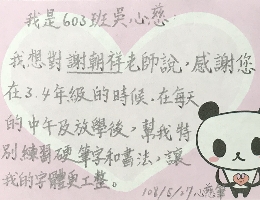 我是603班吳心慈.
我想對謝朝祥老師說，感謝您
在3.4年級的時候，在每天
的中午及放學後，幫我特
別練習硬筆字和書法，讓
我的字體更工整。
108/5/27心慈筆